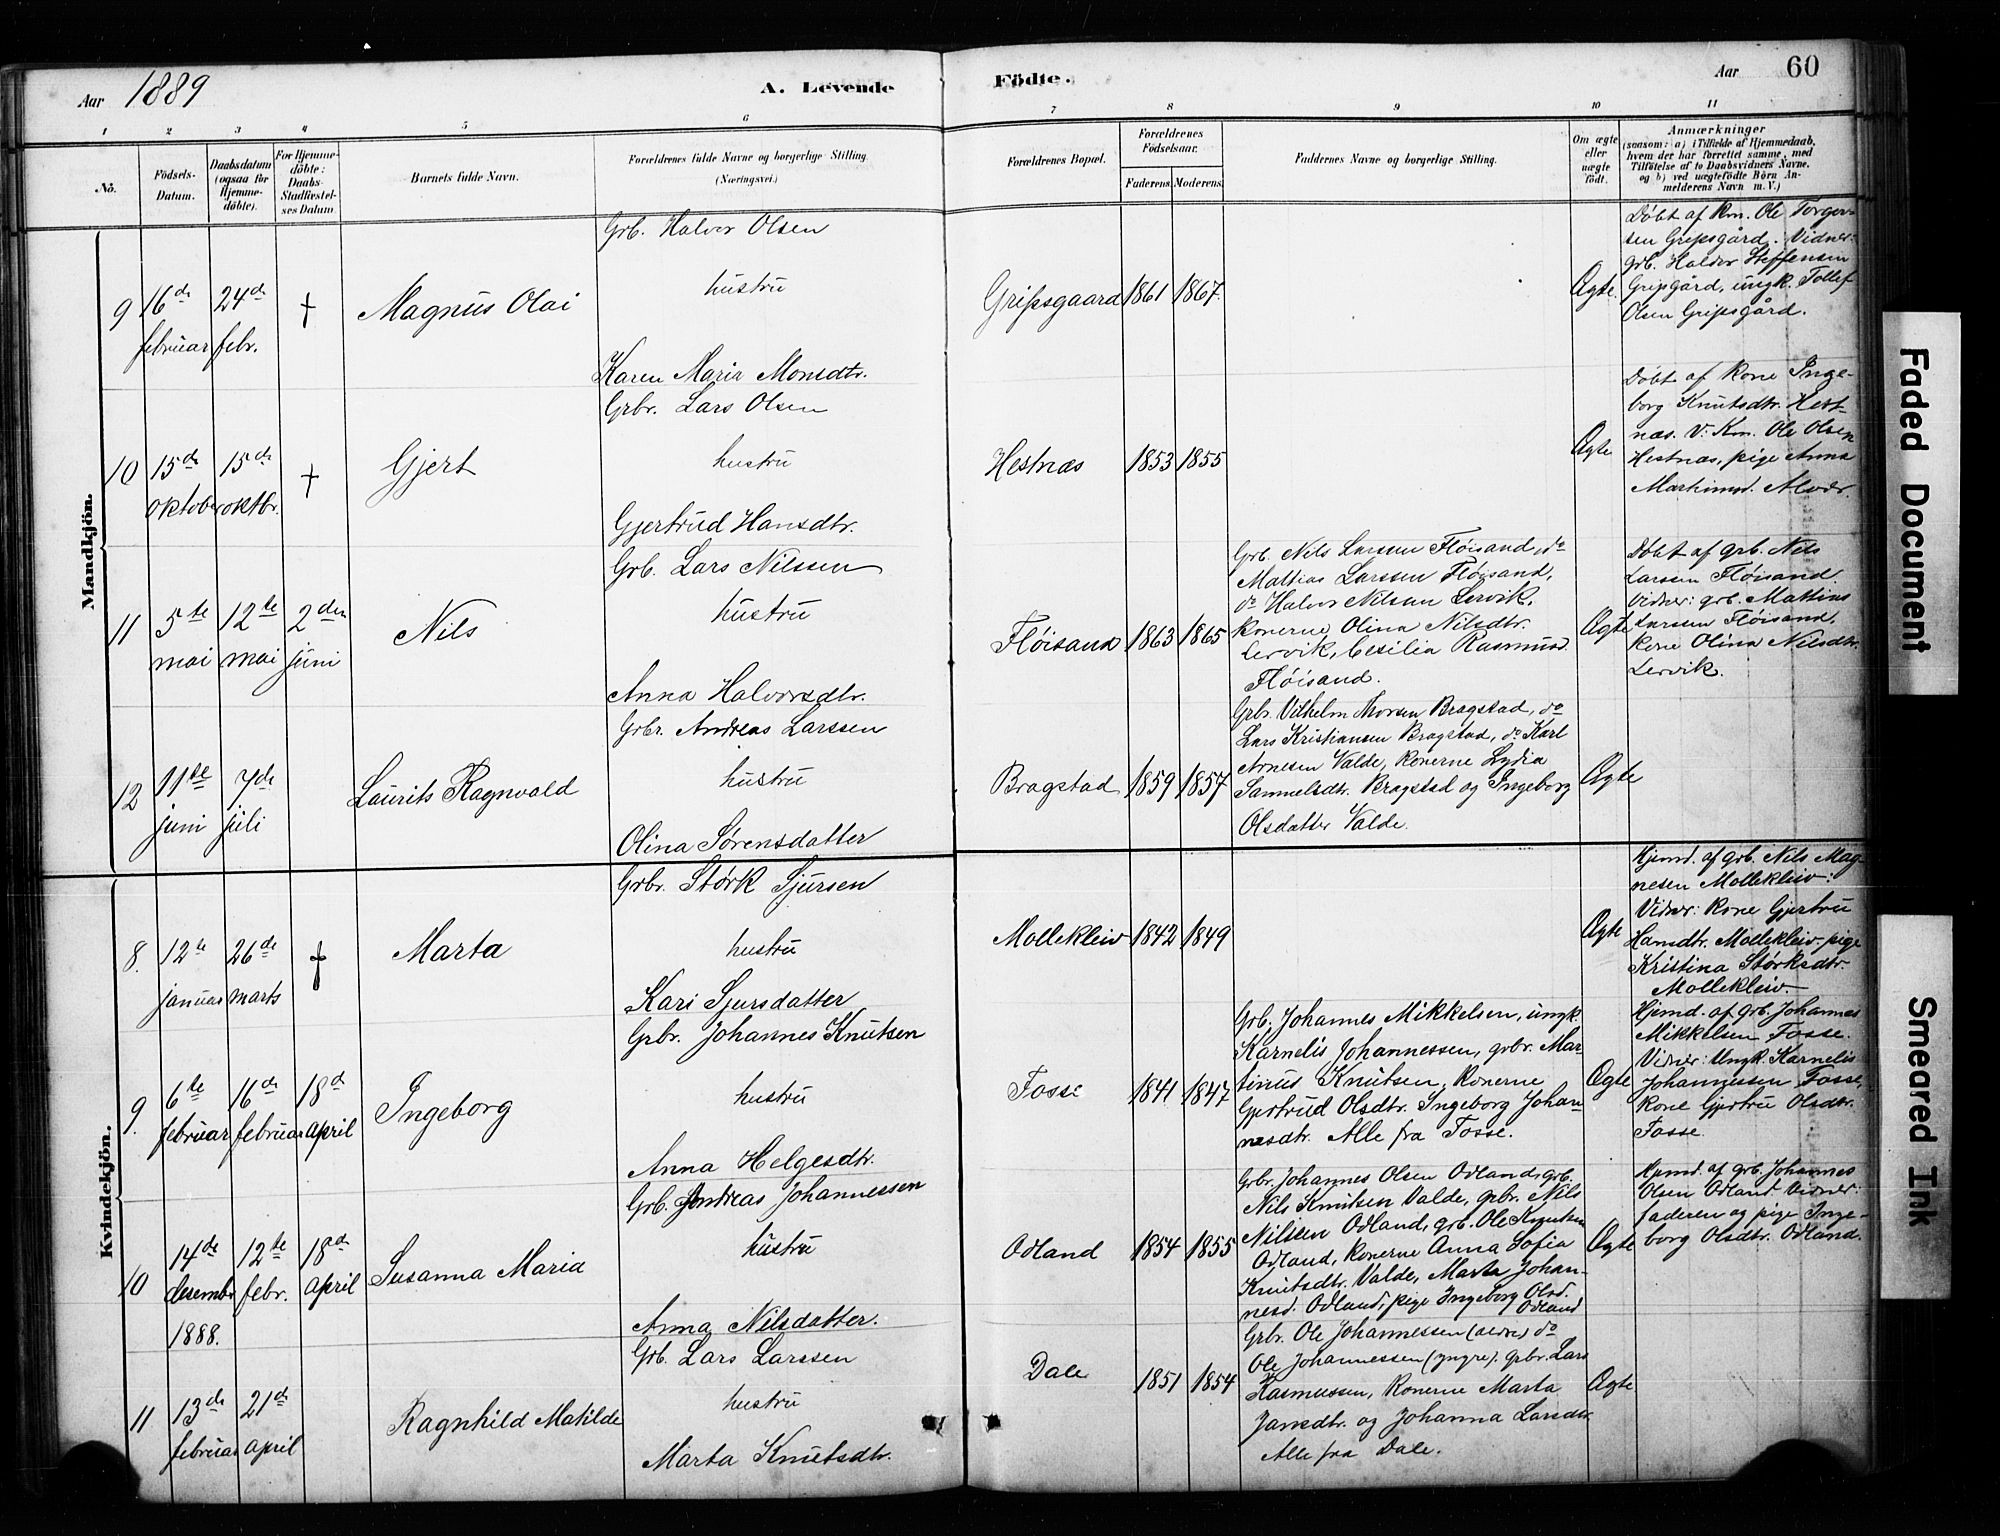 Aar 1889
A. Levende
Födte.
Aar
60
1 2 3 4 5 6 7 8 9 10 11
No.
Födsels-Datum.
Daabsdatum (ogsaa for Hjemmedöbte).
For Hjemmedöbte: Daabs-Stadfæstelses Datum
Barnets fulde Navn.
Forældrenes fulde Navne og borgerlige Stilling
(Næringsvei.)
Forældrenes Bopæl.
Forældrenes Födselsaar.
Faderens.
Moderens.
Faddernes Navne og borgerlige Stilling.
Om ægte eller uægte födt.
Anmærkninger
(saasom: a) i Tilfælde af Hjemmedaab,
hvem der har forrettet samme, med
Tilföielse af to Daabsvidners Navne.
og b) ved uægtefödte Börn An-
melderens Navn m. V.)
Mandkjön.
9
16de februar
24de febr.
†
Magnus Olai
Grb. Halvor Olsen
hustru
Karen Maria Monsdtr.
Gripsgaard
1861
1867
Ægte.
Döbt af Km. Ole Torger-
sen Gripsgård. Vidner:
grb. Halvor Steffensen
Gripgård, ungk. Tollef
Olsen Gripsgård.
10
15de oktober
15de oktbr.
†
Gjert
Grbr. Lars Olsen
hustru
Gjertrud Hansdtr.
Hestnæs
1853
1855
Ægte
Döbt af Kone Inge-
borg Knutsdtr. Hest-
næs. V: Km. Ole Olsen
Hestnæs, pige Anna
Martinsd. Alvær.
11
5te mai
12te mai
2den juni
Nils
Grb. Lars Nilssen
hustru
Anna Halvorsdtr.
Flöisand
1863
1865
Grb. Nils Larssen Flöisand, do
Mattias Larssen Flöisand,
do Halvor Nilsen Lervik,
konerne Olina Nilsdtr.
Lervik, Cesilia Rasmusd.
Flöisand.
Ægte
Döbt af grb. Nils
Larssen Flöisand.
Vidner: grb. Mattias
Larssen Flöisand,
kone Olina Nilsdtr.
Lervik.
12
11te juni
7de juli
Laurits Ragnvald
Grbr. Andreas Larssen
hustru
Olina Sørensdatter
Bragstad
1859
1857
Grbr. Vilhelm Monsen Bragstad, do
Lars Kristiansen Bragstad, do Karl
Arnesen Valde, Konerne Lydia
Samuelsdtr. Bragstad og Ingeborg
Olsdatter Valde.
Ægte
Kvindekjön.
8.
12te januar
26de marts
†
Marta
Grbr. Störk Sjursen
hustru
Kari Sjursdatter
Mollekleiv
1842
1849
Ægte
Hjemd. af grb. Nils Mag-
nesen Mollekleiv:
Vidner: Kone Gjertru
Hansdtr. Mollekleiv pige
Kristina Störksdtr.
Mollekleiv.
9.
6te februar
16de februar
18d april
Ingeborg
Grbr. Johannes Knutsen
hustru
Anna Helgesdtr.
Fosse
1841
1847
Grb. Johannes Mikkelsen, ungk.
Karnelis Johannessen, grbr. Mar-
tinus Knutsen, Konerne
Gjertrud Olsdtr. Ingeborg Johan-
nesdtr. Alle fra Fosse.
Ægte
Hjemd. af grb. Johannes
Mikkelsen Fosse.
Vidner: Ungk. Karnelis
Johannessen Fosse,
Kone Gjertru Olsdtr.
Fosse.
10
14de desembr 1888.
12te febr.
18d april
Susanna Maria
Grb. Andreas Johannessen
hustru
Anna Nilsdatter.
Odland
1854
1855
Grbr. Johannes Olsen Odland, grb.
Nils Knutsen Valde, grbr. Nils
Nilssen Odland, grb. Ole Knutsen
Odland, Konerne Anna Sofia
Knutsdtr. Valde, Marta Johan-
nesd. Odland, pige Ingeborg Olsd.
Odland
Ægte
Hjemd. af grb. Johannes
Olsen Odland Vidner:
faderen og pige Inge-
borg Olsdtr. Odland.
11
13de februar
21de april
Ragnhild Matilde
Grb. Lars Larssen
hustru
Marta Knutsdtr.
Dale
1851
1854
Grbr. Ole Johannessen (ældre) do
Ole Johannessen (yngre). grbr. Lars
Rasmussen, Konerne Marta
Jansdtr. og Johanna Larsdtr.
Alle fra Dale.
Ægte
Faded Document
Smeared Ink